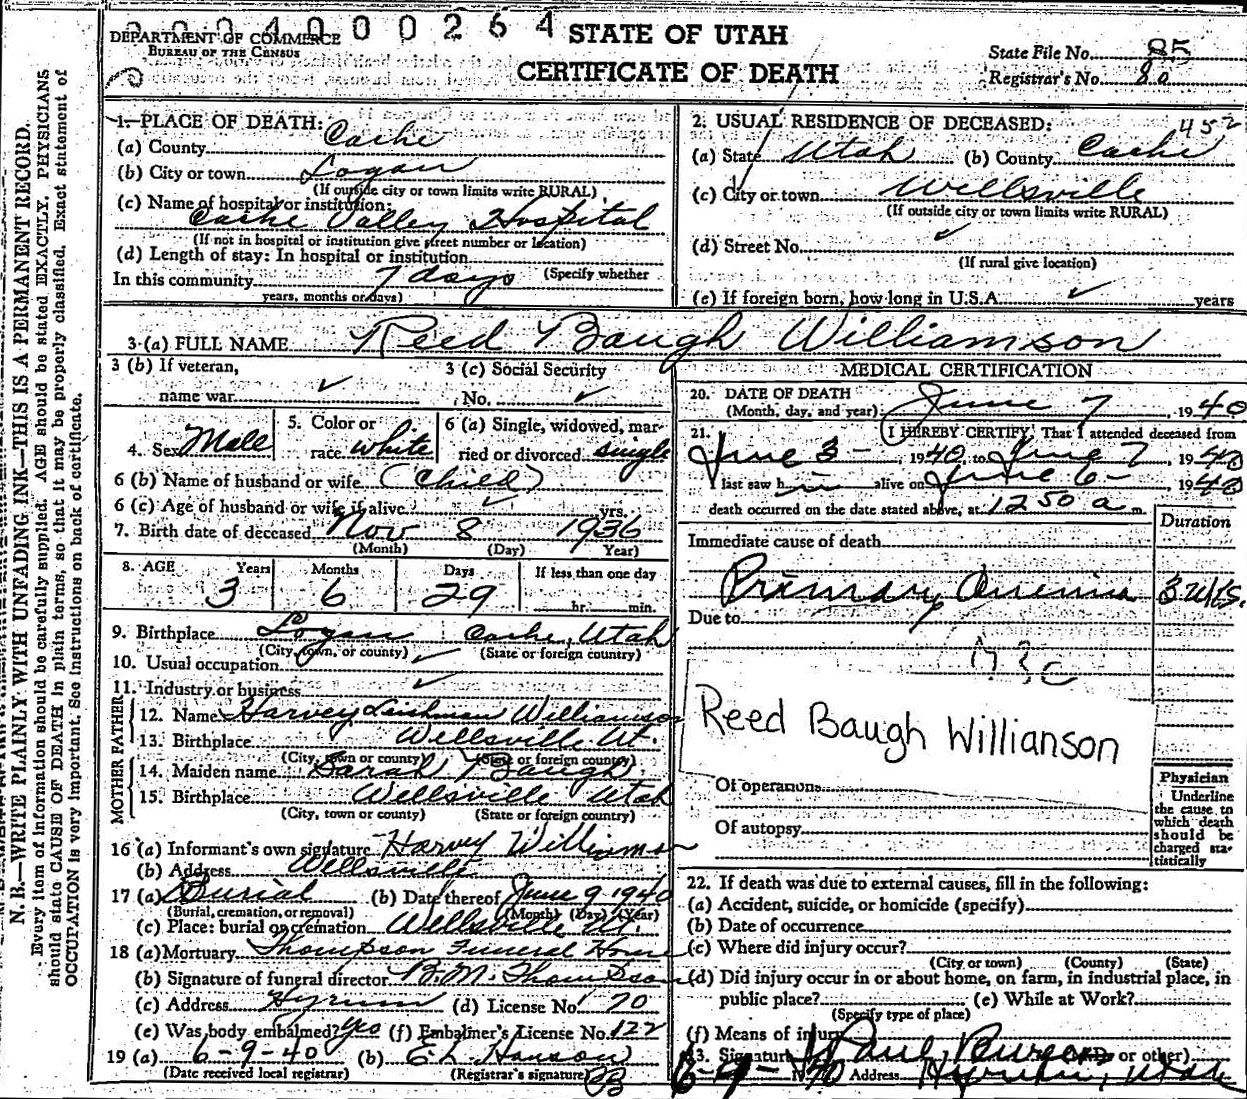 2004000264
STATE OF UTAH
CERTIFICATE OF DEATH
DEPARTMENT OF COMMERCE
BUREAU OF THE CENSUS
State File No. 85
Registrar's No. 80
N. B.—WRITE PLAINLY WITH UNFADING INK—THIS IS A PERMANENT RECORD.
Every item of information should be carefully supplied. AGE should be stated EXACTLY. PHYSICIANS
should state CAUSE OF DEATH in plain terms, so that it may be properly classified. Exact statement of
OCCUPATION is very important. See instructions on back of certificate.
1. PLACE OF DEATH:
(a) County Cache
(b) City or town Logan
(If outside city or town limits write RURAL)
(c) Name of hospital or institution:
Cache Valley Hospital
(If not in hospital or institution give street number or location)
(d) Length of stay: In hospital or institution
(Specify whether
In this community 7 days
years, months or days)
2. USUAL RESIDENCE OF DECEASED: 452
(a) State Utah (b) County Cache
(c) City or town Wellsville
(If outside city or town limits write RURAL)
(d) Street No. ✓
(If rural give location)
(e) If foreign born, how long in U.S.A. ✓ years
3 (a) FULL NAME Reed Baugh Williamson
3 (b) If veteran,
name war ✓
3 (c) Social Security
No. ✓
4. Sex Male
5. Color or
race white
6 (a) Single, widowed, mar-
ried or divorced single
6 (b) Name of husband or wife (Child)
6 (c) Age of husband or wife if alive ✓ yrs.
7. Birth date of deceased Nov 8 1936
(Month) (Day) Year)
8. AGE Years Months Days If less than one day
3 6 29 hr. min.
9. Birthplace Logan Cache, Utah
(City, town, or county) (State or foreign country)
10. Usual occupation ✓
11. Industry or business ✓
FATHER
12. Name Harvey Leishman Williamson
13. Birthplace Wellsville Ut.
(City, town or county) (State or foreign country)
MOTHER
14. Maiden name Sarah Baugh
15. Birthplace Wellsville Utah
(City, town or county) (State or foreign country)
16 (a) Informant's own signature Harvey Williamson
(b) Address Wellsville
17 (a) Burial (b) Date thereof June 9 1940
(Burial, cremation, or removal) (Month) (Day) (Year)
(c) Place: burial or cremation Wellsville Ut.
18 (a) Mortuary Thompson Funeral Home
(b) Signature of funeral director B. M. Thompson
(c) Address Hyrum (d) License No. 70
(e) Was body embalmed? yes (f) Embalmer's License No. 122
19 (a) 6-9-40 (b) E. L. Hanson
(Date received local registrar) (Registrar's signature)
MEDICAL CERTIFICATION
20. DATE OF DEATH
(Month, day, and year) June 7, 1940
21. I HEREBY CERTIFY, That I attended deceased from
June 3 -, 1940, to June 7, 1940
I last saw him alive on June 6 -, 1940
death occurred on the date stated above, at 1250 a m.
Duration
Immediate cause of death
Primary Anemia 3 wks.
Due to
73c
Reed Baugh Willianson
Of operations
Of autopsy
Physician
Underline
the cause to
which death
should be
charged sta-
tistically
22. If death was due to external causes, fill in the following:
(a) Accident, suicide, or homicide (specify)
(b) Date of occurrence
(c) Where did injury occur?
(City or town) (County) (State)
(d) Did injury occur in or about home, on farm, in industrial place, in
public place? (e) While at Work?
(Specify type of place)
(f) Means of injury
23. Signature Paul Burgess or other)
6-9-1940 Address Hyrum, Utah